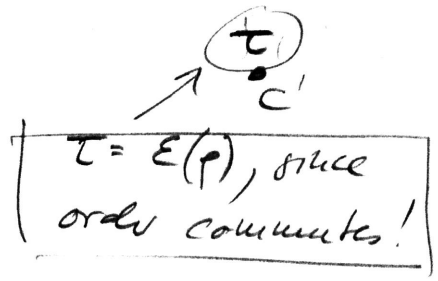 τ
c'
τ = ε(ρ), since
order commutes!